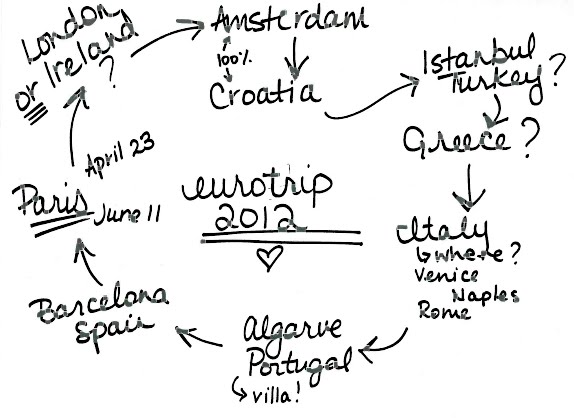 London
or Ireland
?
Amsterdam
100%
Croatia
Istanbul
Turkey?
Greece?
Italy
where?
Venice
Naples
Rome
Algarve
Portugal
villa!
Barcelona
Spain
Paris
April 23
June 11
eurotrip
2012